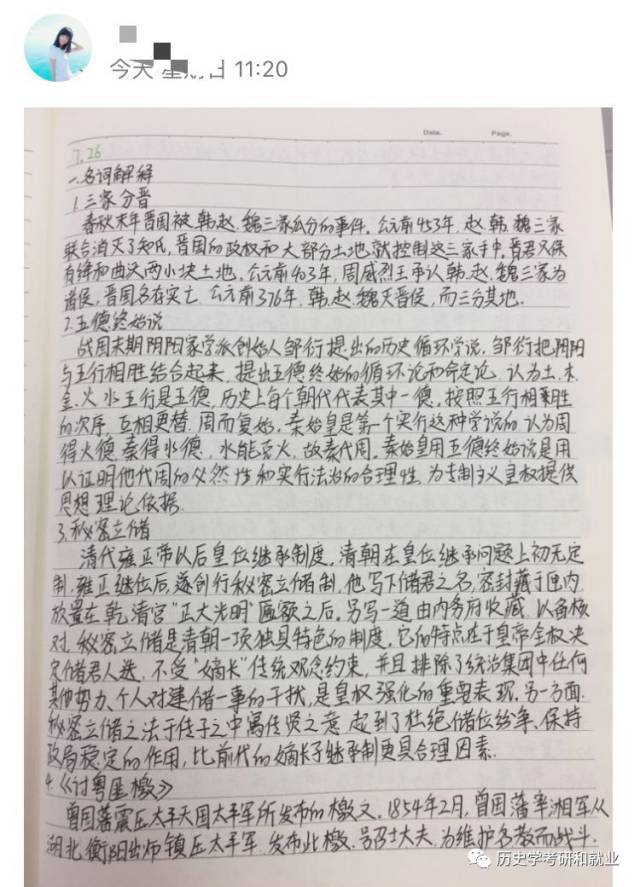 今天 星期日 11:20
Date. Page.
7.26
一.名词解释
1.三家分晋
春秋末年晋国被韩.赵.魏三家瓜分的事件。公元前453年,赵.韩.魏三家
联合消灭了知氏,晋国的政权和大部分土地就控制这三家手中。晋君只保
有绛和曲沃两小块土地。公元前403年,周威烈王承认韩.赵.魏三家为
诸侯,晋国名存实亡。公元前376年,韩.赵.魏灭晋侯,而三分其地.
2.五德终始说
战国末期阴阳家学派创始人邹衍提出的历史循环学说。邹衍把阴阳
与五行相胜结合起来,提出五德终始的循环论和命定论。认为土.木.
金.火.水五行是五德,历史上每个朝代代表其中一德,按照五行相生
的次序,互相更替.周而复始。秦始皇是第一个实行这种学说的.认为周
得火德.秦得水德,水能克火.故秦代周。秦始皇用五德终始说是用
以证明他代周的必然性和实行法治的合理性,为专制主义皇权提供
思想理论依据.
3.秘密立储
清代雍正帝以后皇位继承制度。清朝在皇位继承问题上初无定
制.雍正继位后,遂创行秘密立储制.他写下储君之名,密封藏于匣内,
放置在乾清宫"正大光明"匾额之后。另写一道由内务府收藏,以备核
对.秘密立储是清朝一项独具特色的制度。它的特点在于皇帝全权决
定储君人选,不受"嫡长"传统观念约束,并且排除了统治集团中任何
其他势力、个人对建储一事的干扰,是皇权强化的重要表现.另一方面
秘密立储之法于传子之中寓传贤之意.起到了杜绝储位纷争、保持
政局稳定的作用,比前代的嫡长子继承制更具合理因素.
4.《讨粤匪檄》
曾国藩镇压太平天国太平军所发布的檄文。1854年2月,曾国藩率湘军从
湖北衡阳出师镇压太平军.发布此檄.号召士大夫.为维护名教而战斗.
历史学考研和就业